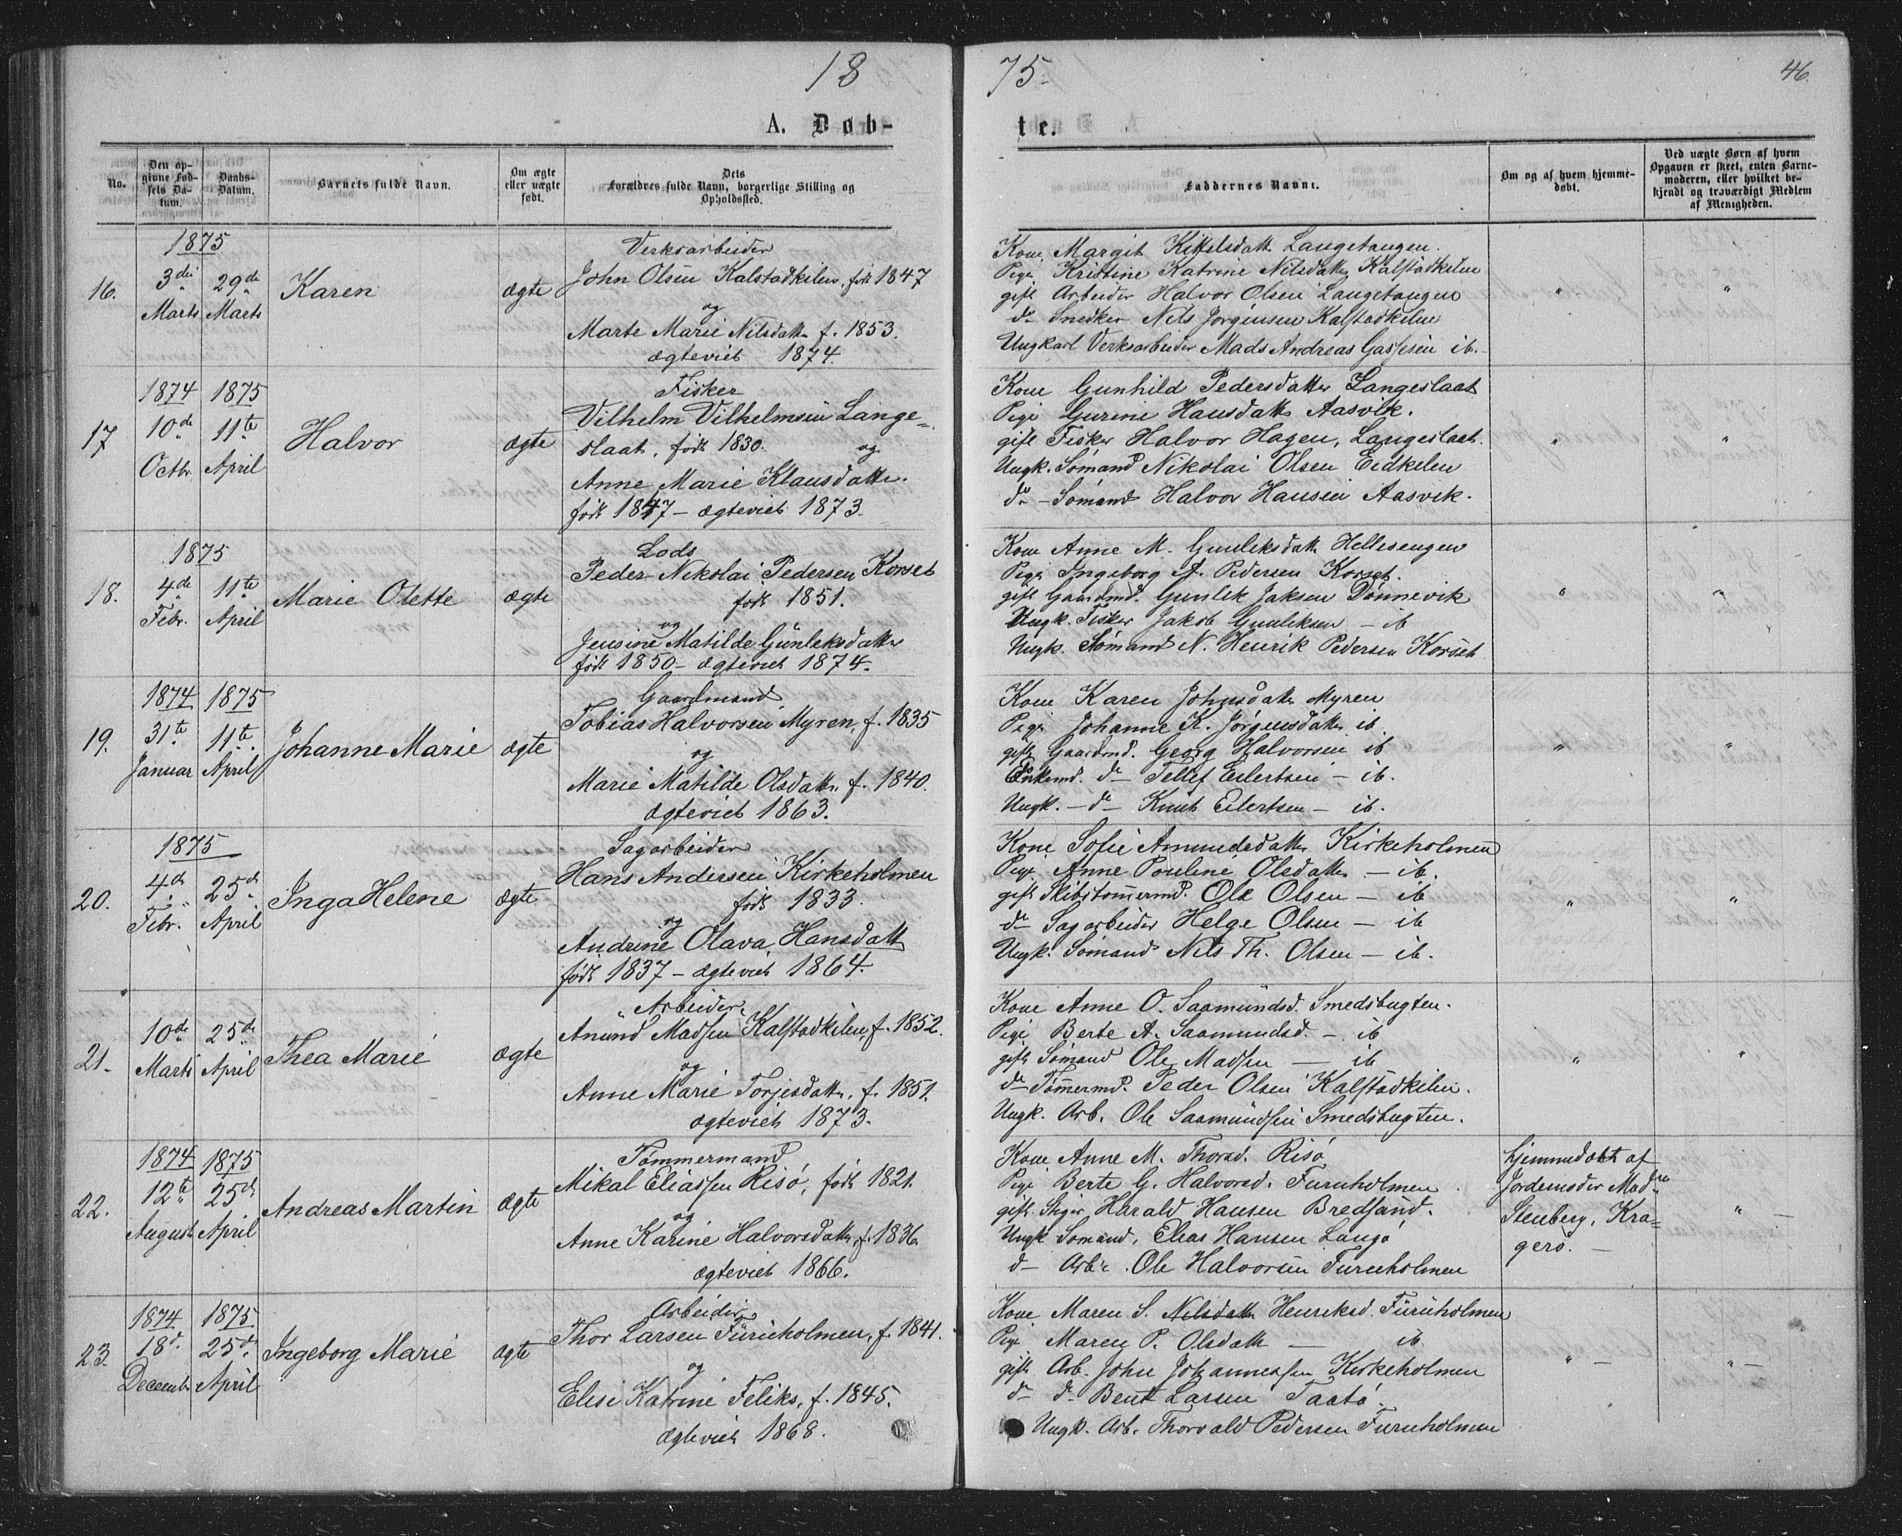 18
75
46.
A. Døb-
te.
No.
Den opgivne Fødsels Datum.
Daabs-Datum.
Barnets fulde Navn.
Om ægte eller uægte født.
Dets Forældres fulde Navn, borgerlige Stilling og Opholdssted.
Faddernes Navne.
Om og af hvem hjemmedøbt.
Ved uægte Børn af hvem Opgaven er skeet, enten Barnemoderen, eller hvilket bekjendt og troværdigt Medlem af Menigheden.
1875
16. 3die Marts 29de Marts Karen ægte
Verksarbeider
John Olsen Kalstadkilen, født 1847
og
Marte Marie Nilsdatter f. 1853.
ægteviet 1874.
Kone Margit Kittelsdatter Langetangen.
Pige Kristine Katrine Nilsdatter Kalstadkilen
gift Arbeider Halvor Olsen Langetangen
do Snedker Nils Jørgensen Kalstadkilen
Ungkarl Verksarbeider Mads Andreas Gassesen ib.
"
"
1874 1875
17 10de Octbr. 11te April Halvor ægte
Fisker
Vilhelm Vilhelmsen Lange-
slaat, født 1830. og
Anne Marie Klausdatter.
født 1847 – ægteviet 1873.
Kone Gunhild Pedersdatter Langeslaat
Pige Gurine Hansdatter Aasvik.
gift Fisker Halvor Hagen, Langeslaat.
Ungk. Sømand Nikolai Olsen Eidkilen
do – Sømand Halvor Hansen Aasvik.
"
"
1875
18. 4de Febr. 11te April Marie Olette ægte
Lods
Peder Nikolai Pedersen Korset
født 1851.
og
Jensine Matilde Gunleksdatter
født 1850 – ægteviet 1874.
Kone Anne M. Gunleksdatter Hellesengen
Pige Ingeborg A. Pedersen Korset.
gift Gaardmd. Gunlek Jaksen Dønnevik
Ungk. Fisker Jakob Gunleksen – ib
Ungk. Sømand N. Henrik Pedersen Korset
"
"
1874 1875
19. 31te Januar 11te April Johanne Marie ægte
Gaardmand
Tobias Halvorsen Myren, f. 1835
og
Marie Matilde Olsdatter f. 1840.
ægteviet 1863.
Kone Karen Johnsdatter Myren
Pige Johanne K. Jørgensdatter ib.
gift Gaardmd. Georg Halvorsen ib
Enkemd. do Tellef Eilertsen – ib.
Ungk. – do Knut Eilertsen – ib.
"
"
1875
20. 4de Febr. 25de April Inga Helene ægte
Sagarbeider
Hans Andersen Kirkeholmen
født 1833.
og
Andrine Olava Hansdatt
født 1837 – ægteviet 1864.
Kone Sofie Amundsdatter Kirkeholmen
Pige Anne Pouline Olsdatter – ib.
gift Skibstømermd. Ole Olsen – ib
do Sagarbeider Helge Olsen – ib
Ungk. Sømand Nils Th. Olsen – ib.
"
"
21. 10de Marts 25de April Thea Marie ægte
Arbeider
Anund Madsen Kalstadkilen, f. 1852.
og
Anne Marie Torjesdatter, f. 1851.
ægteviet 1873.
Kone Anne O. Saamundsd. Smedsbugten.
Pige Berte A. Saamundsd. – ib
gift Sømand Ole Madsen – ib
do Tømermd. Peder Olsen Kalstadkilen.
Ungk. Arb. Ole Saamundsen Smedsbugten.
"
"
1874 1875
22. 12te August 25de April Andreas Martin ægte
Tømmermand
Mikal Eliassen Risø, født 1821.
og
Anne Karine Halvorsdatter, f. 1836.
ægteviet 1866.
Kone Anne M. Thorsd. Risø
Pige Berte G. Halvorsd. Furuholmen
gift Harald Hansen Bredsand.
Ungk Sømand, Elias Hansen Langø
do – Arb. Ole Halvorsen Furuholmen
hjemmedøbt af
Jordemoder Madme
Stenberg, Kra-
gerø. –
" –
1874 1875
23. 18de Decembr 25de April Ingeborg Marie ægte
Arbeider
Thor Larsen Furuholmen, f. 1841.
og
Elise Katrine Feliks, f. 1845.
ægteviet 1868.
Kone Maren S. Nilsdatter Henriksd. Furuholmen
Pige Maren P. Olsdatt – ib
gift Arb. John Johannessen Kirkeholmen
do do Bent Larsen Taatø
Ungk. Arb. Thorvald Pedersen Furuholmen
" –
" –